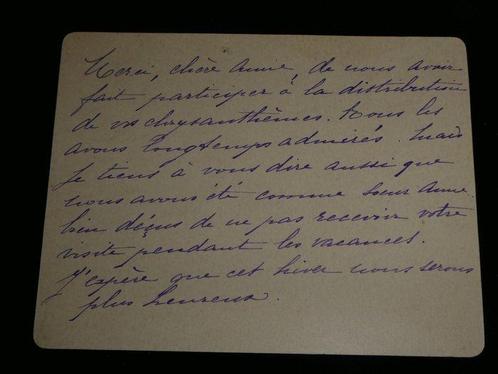 Merci, chère Amie, de nous avoir
fait participer à la distribution
de vos chrysanthèmes. Nous les
avons longtemps admirés. Mais
je tiens à vous dire aussi que
nous avons été comme Sœur Anne
bien déçus de ne pas recevoir votre
visite pendant les vacances.
J'espère que cet hiver nous serons
plus heureux.